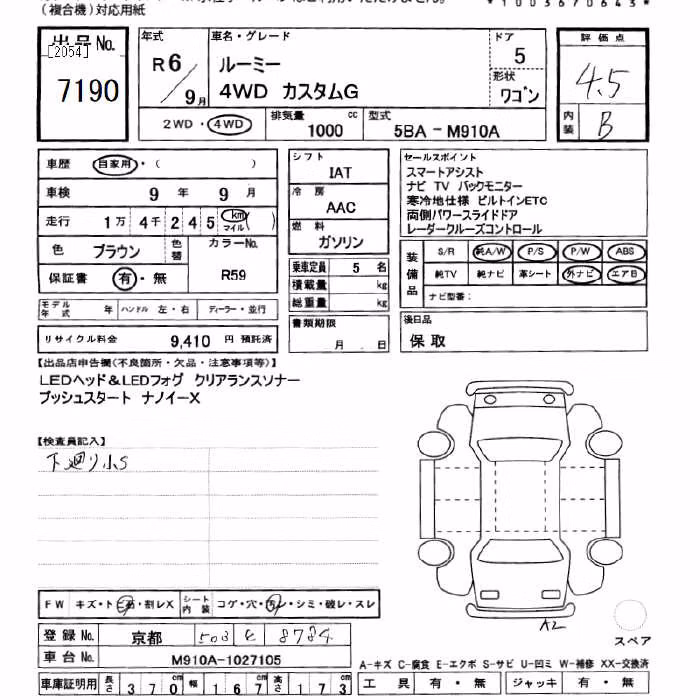 (複合機)対応用紙
*1003670643*
出品No.
[2054]
7190
年式
R6
9月
車名・グレード
ルーミー
4WD カスタムG
ドア
5
形状
ワゴン
2WD・4WD
排気量
1000 cc
型式
5BA-M910A
評価点
4.5
内装
B
車歴 自家用・( )
車検 9年 9月
走行 1万 4千 2 4 5 km マイル ( )
色 ブラウン 色替
カラーNo.
R59
保証書 有・無
モデル年式 年 ハンドル 左・右 ディーラー・並行
リサイクル料金 9,410 円 預託済
シフト
IAT
冷房
AAC
燃料
ガソリン
乗車定員 5 名
積載量 kg
総重量 kg
書類期限
月 日
セールスポイント
スマートアシスト
ナビ TV バックモニター
寒冷地仕様 ビルトインETC
両側パワースライドドア
レーダークルーズコントロール
装備品
S/R 純A/W P/S P/W ABS
純TV 純ナビ 革シート 外ナビ エアB
ナビ型番:
後日品
保取
【出品店申告欄(不良箇所・欠品・注意事項等)】
LEDヘッド&LEDフォグ クリアランスソナー
プッシュスタート ナノイーX
【検査員記入】
下廻り小S
FW キズ・トビ石・割レX
シート内装 コゲ・穴・汚レ・シミ・破レ・スレ
登録No. 京都 503 8784
車台No. M910A-1027105
車庫証明用 長さ 370 cm 幅 167 cm 高さ 173 cm
A2
スペア
A-キズ C-腐食 E-エクボ S-サビ U-凹ミ W-補修 XX-交換済
工具 有・無 ジャッキ 有・無